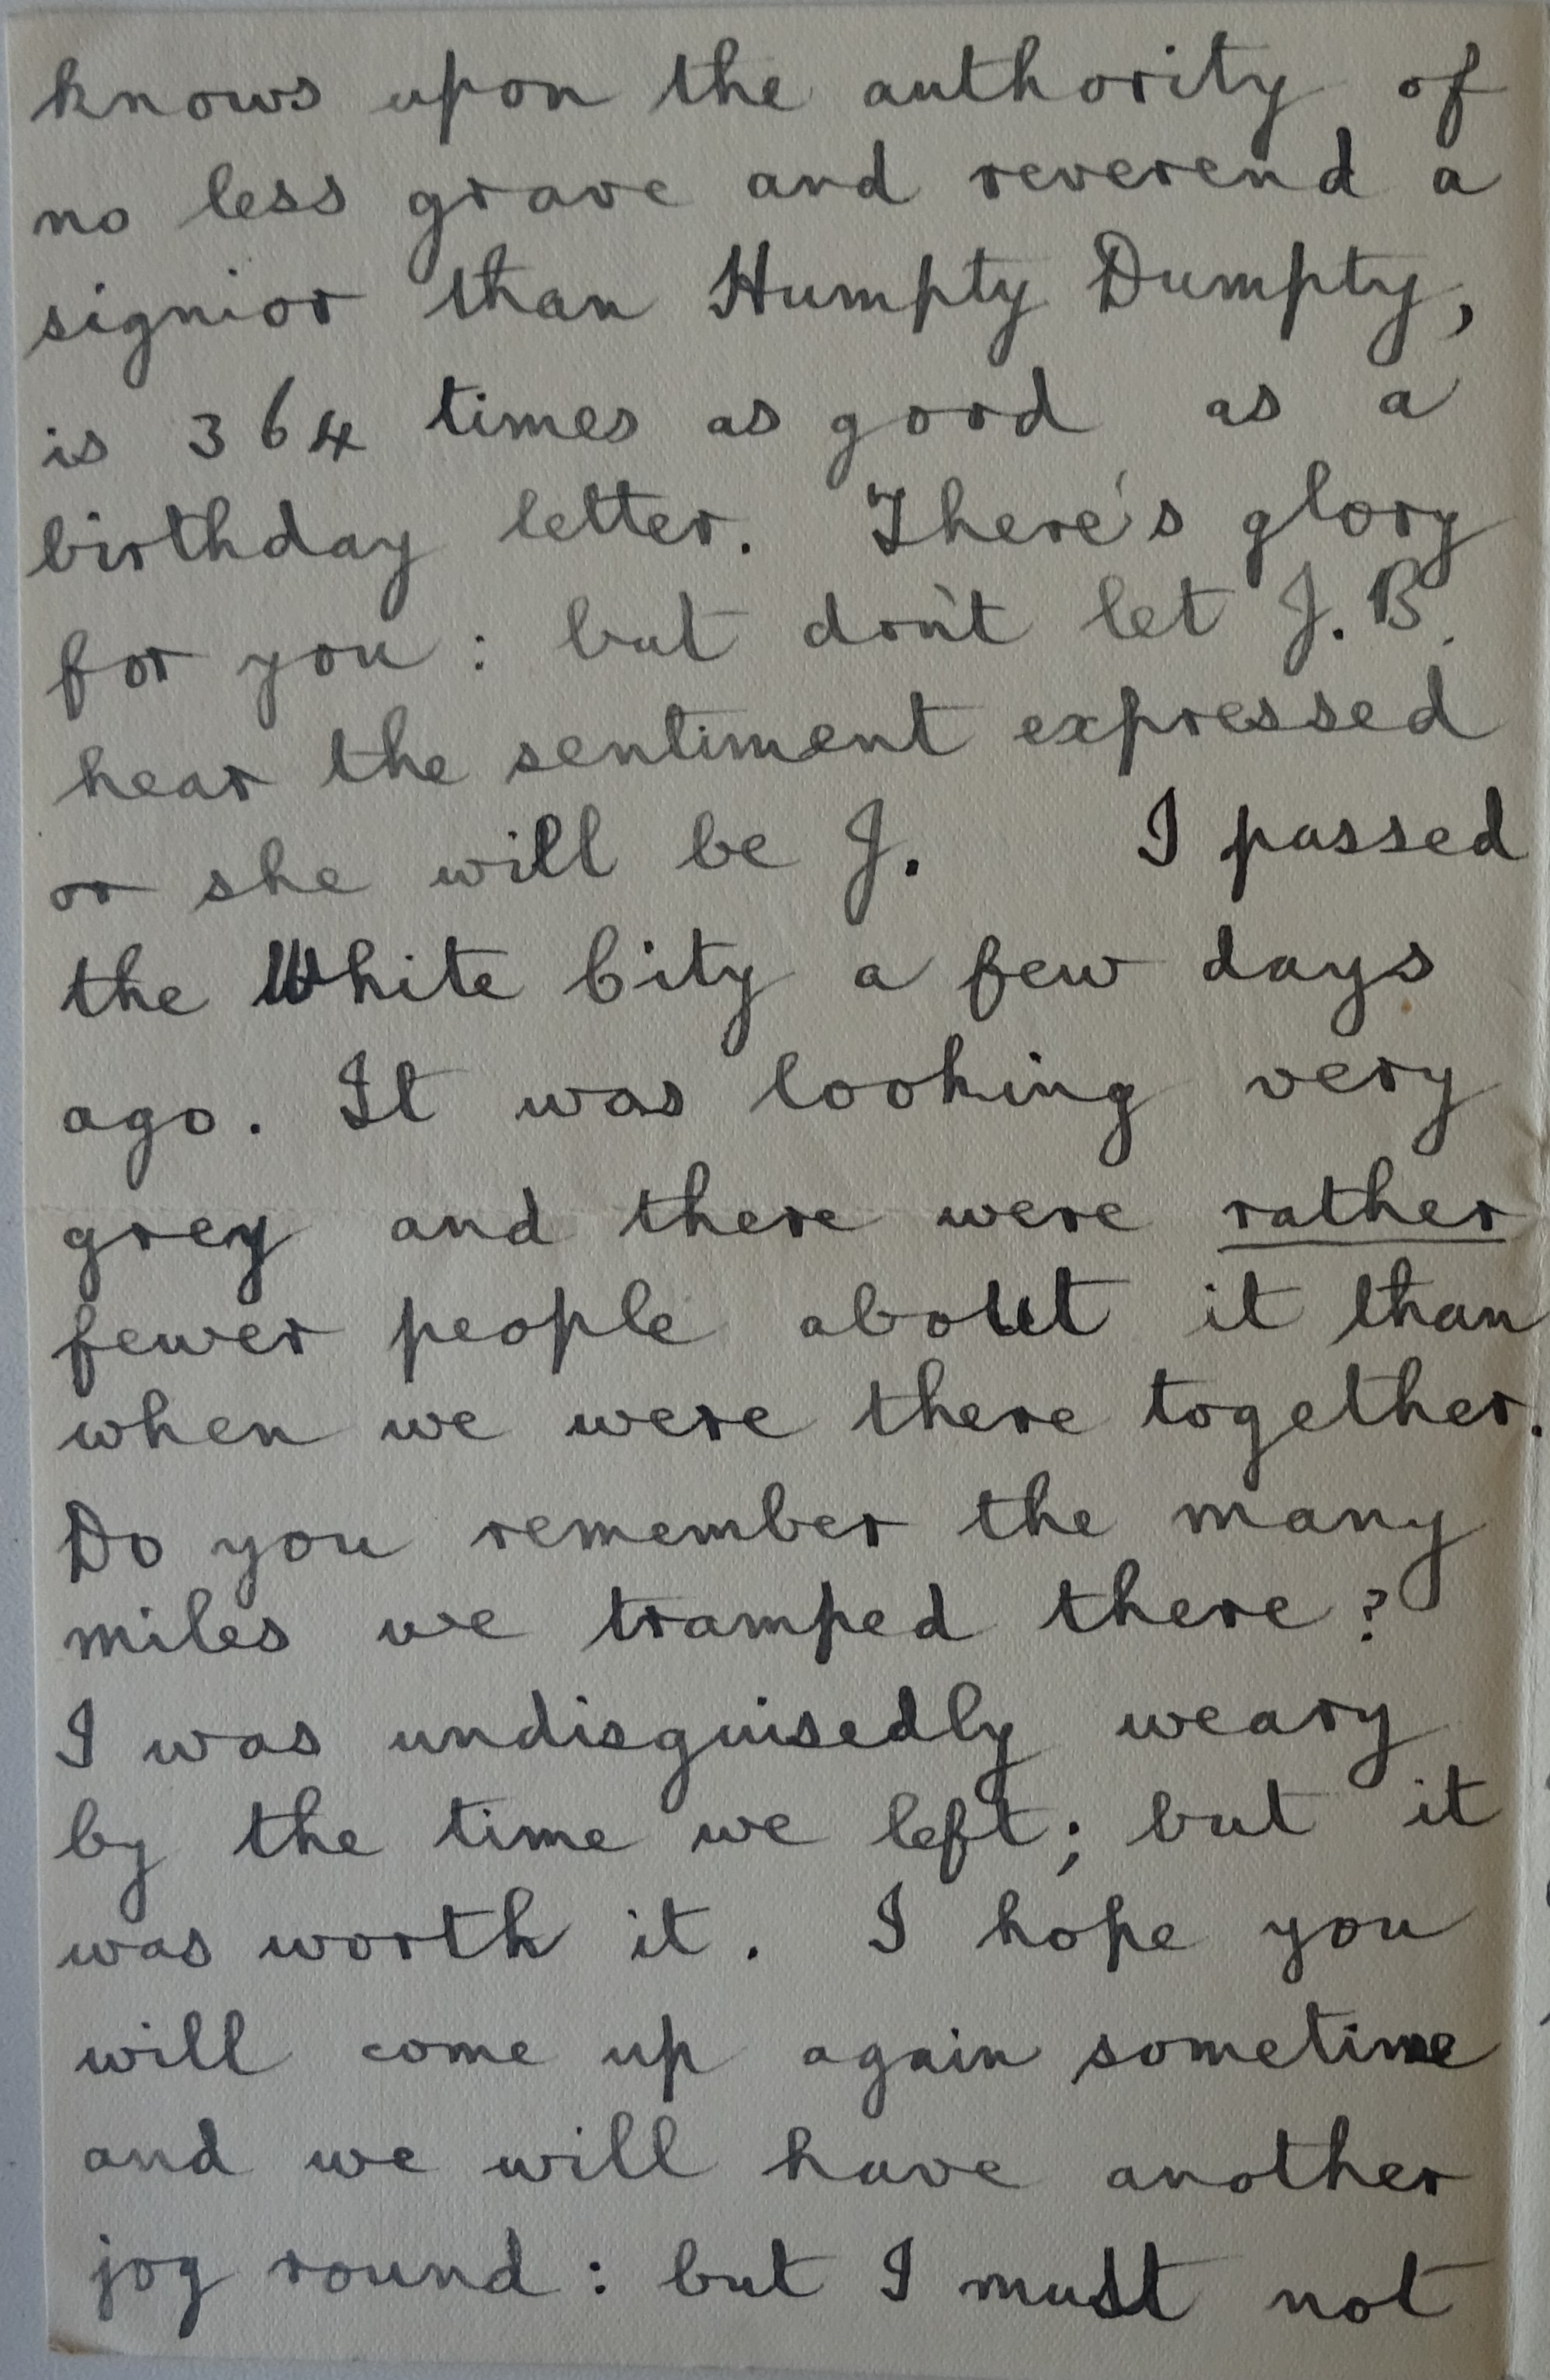 knows upon the authority of
no less grave and reverend a
signior than Humpty Dumpty,
is 364 times as good as a
birthday letter. There's glory
for you : but don't let J. B.
hear the sentiment expressed
or she will be J. I passed
the White City a few days
ago. It was looking very
grey and there were rather
fewer people about it than
when we were there together.
Do you remember the many
miles we tramped there ?
I was undisguisedly weary
by the time we left ; but it
was worth it. I hope you
will come up again sometime
and we will have another
jog round : but I must not